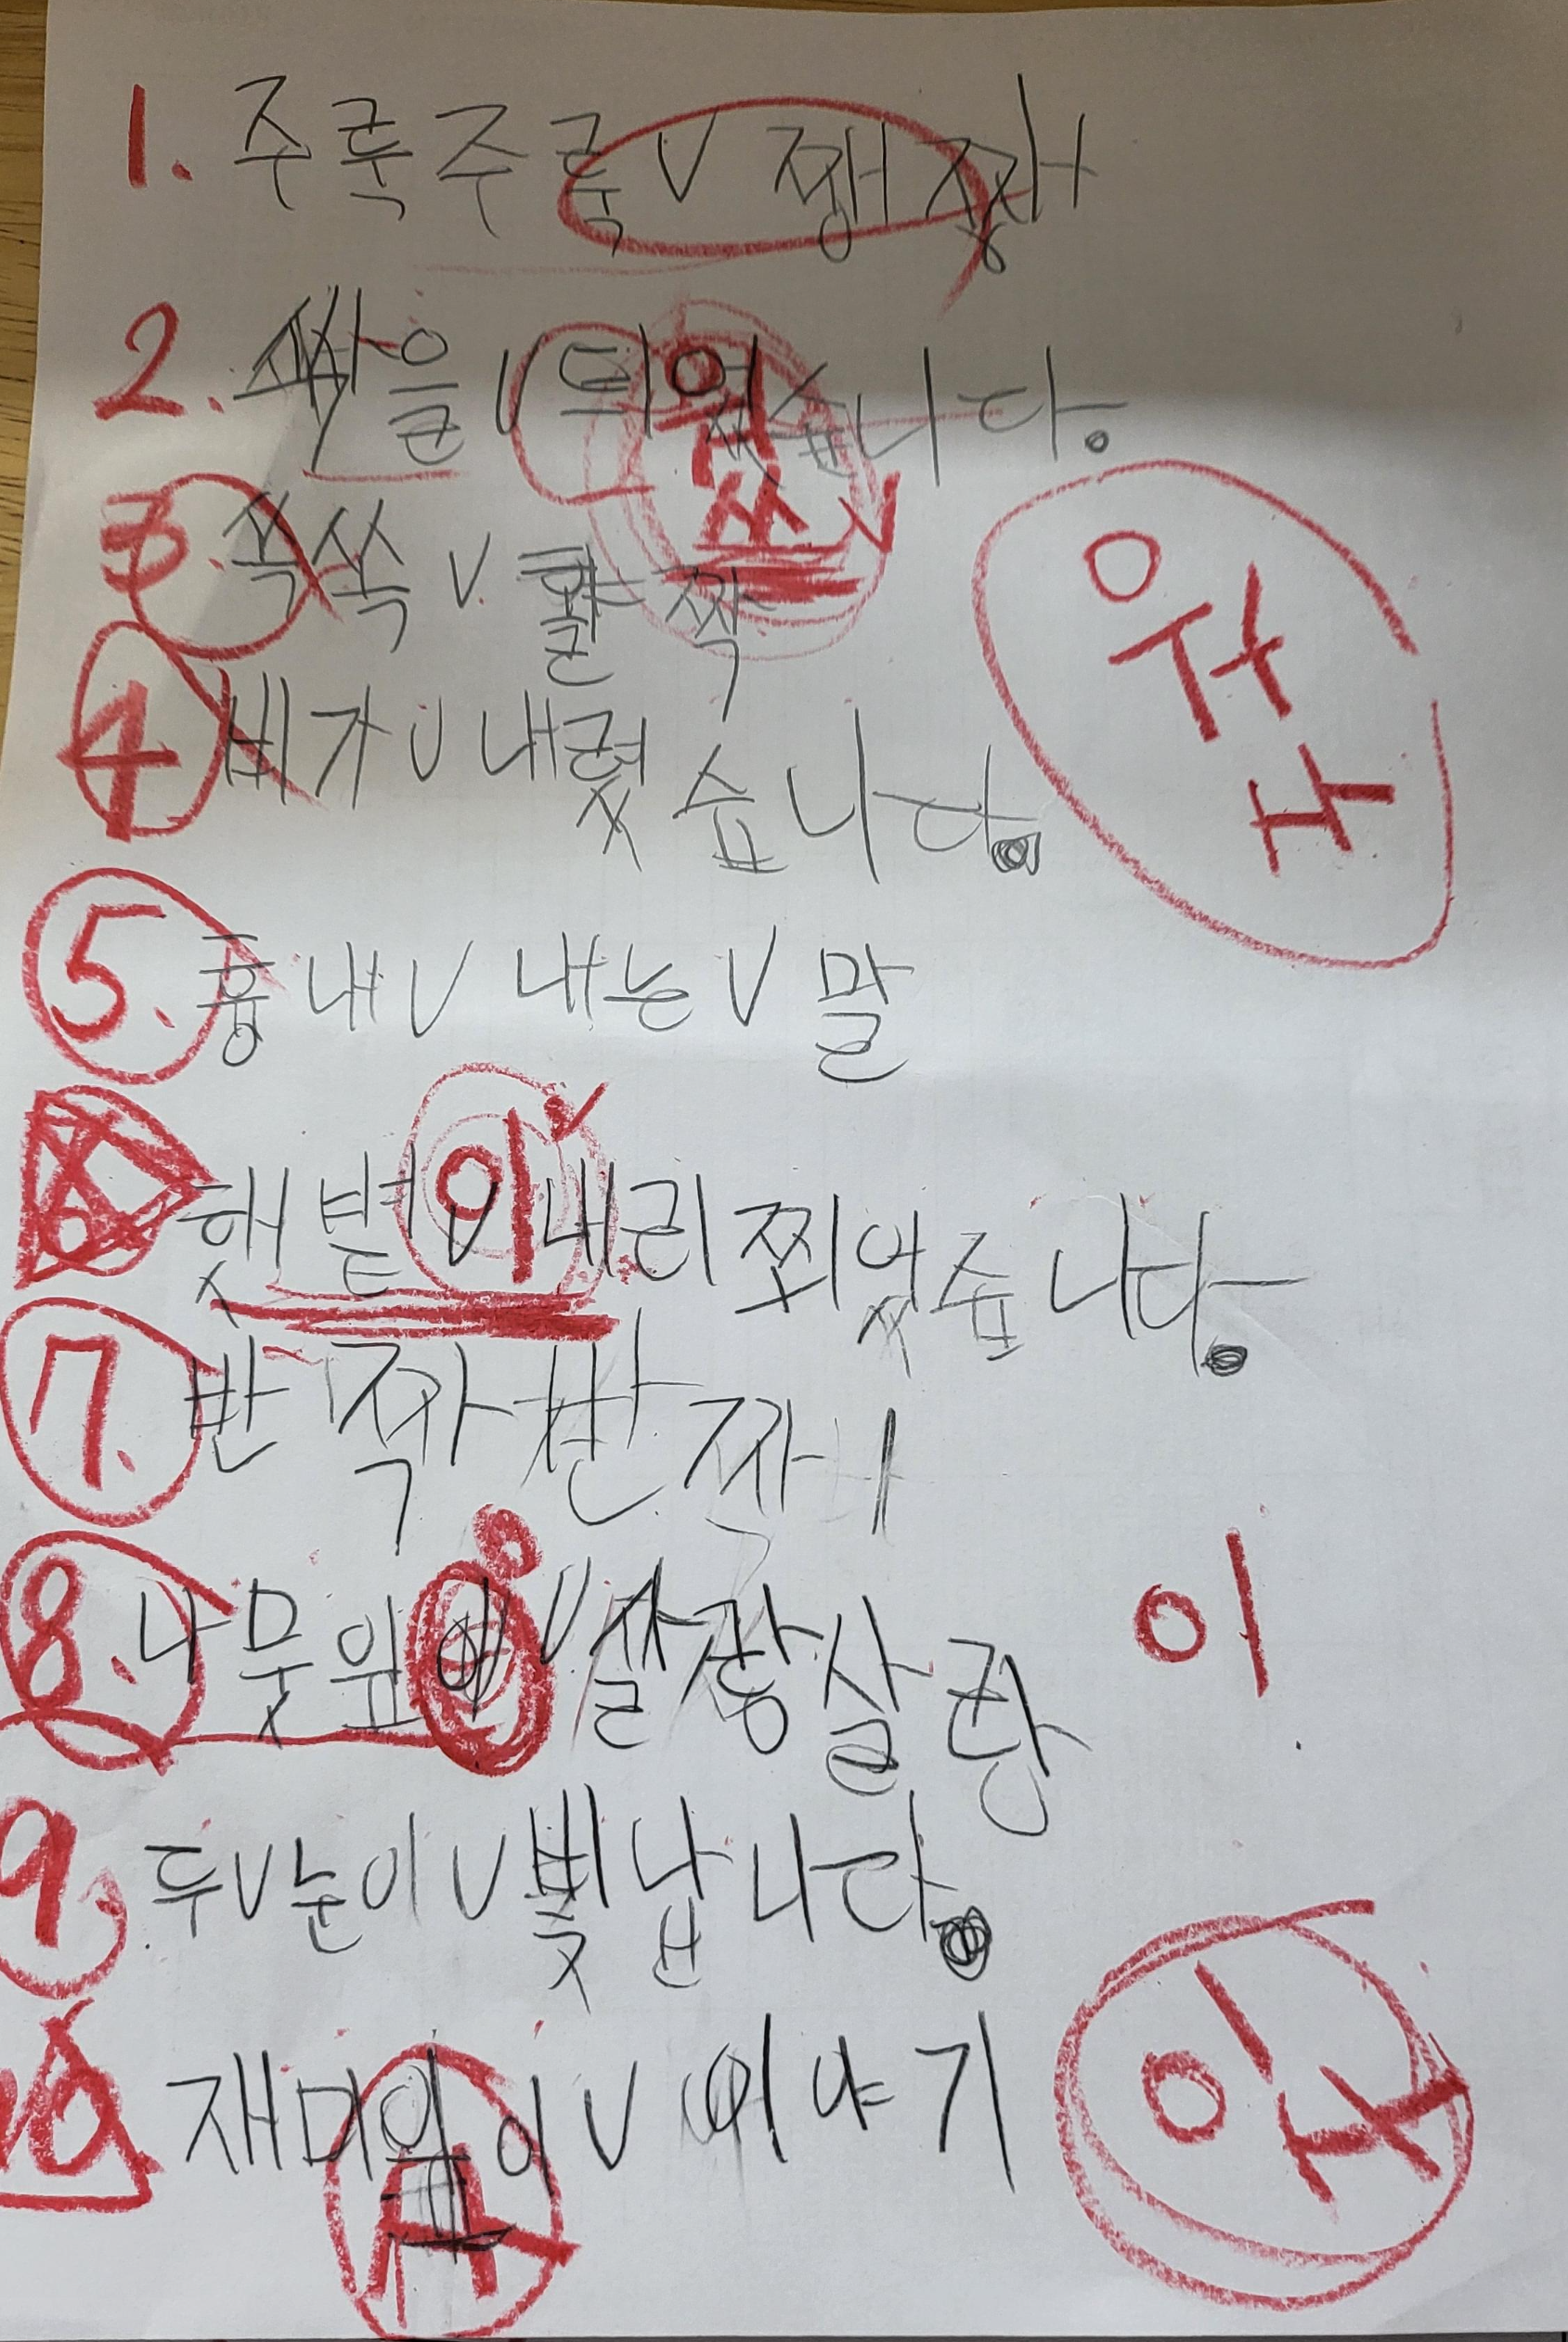 1. 주룩주룩 V 쨍쨍
2. 싹을 V 틔었습니다.
웠
쓰
3. 쏙쏙 V 활짝
4 비가 V 내렸습니다.
5. 흉내 V 내는 V 말
6 햇볕이 V 내리쬐었습니다.
7. 반짝반짝
8. 나뭇잎에 V 살랑살랑
이
9. 두 V 눈이 V 빛납니다.
10 V 이야기